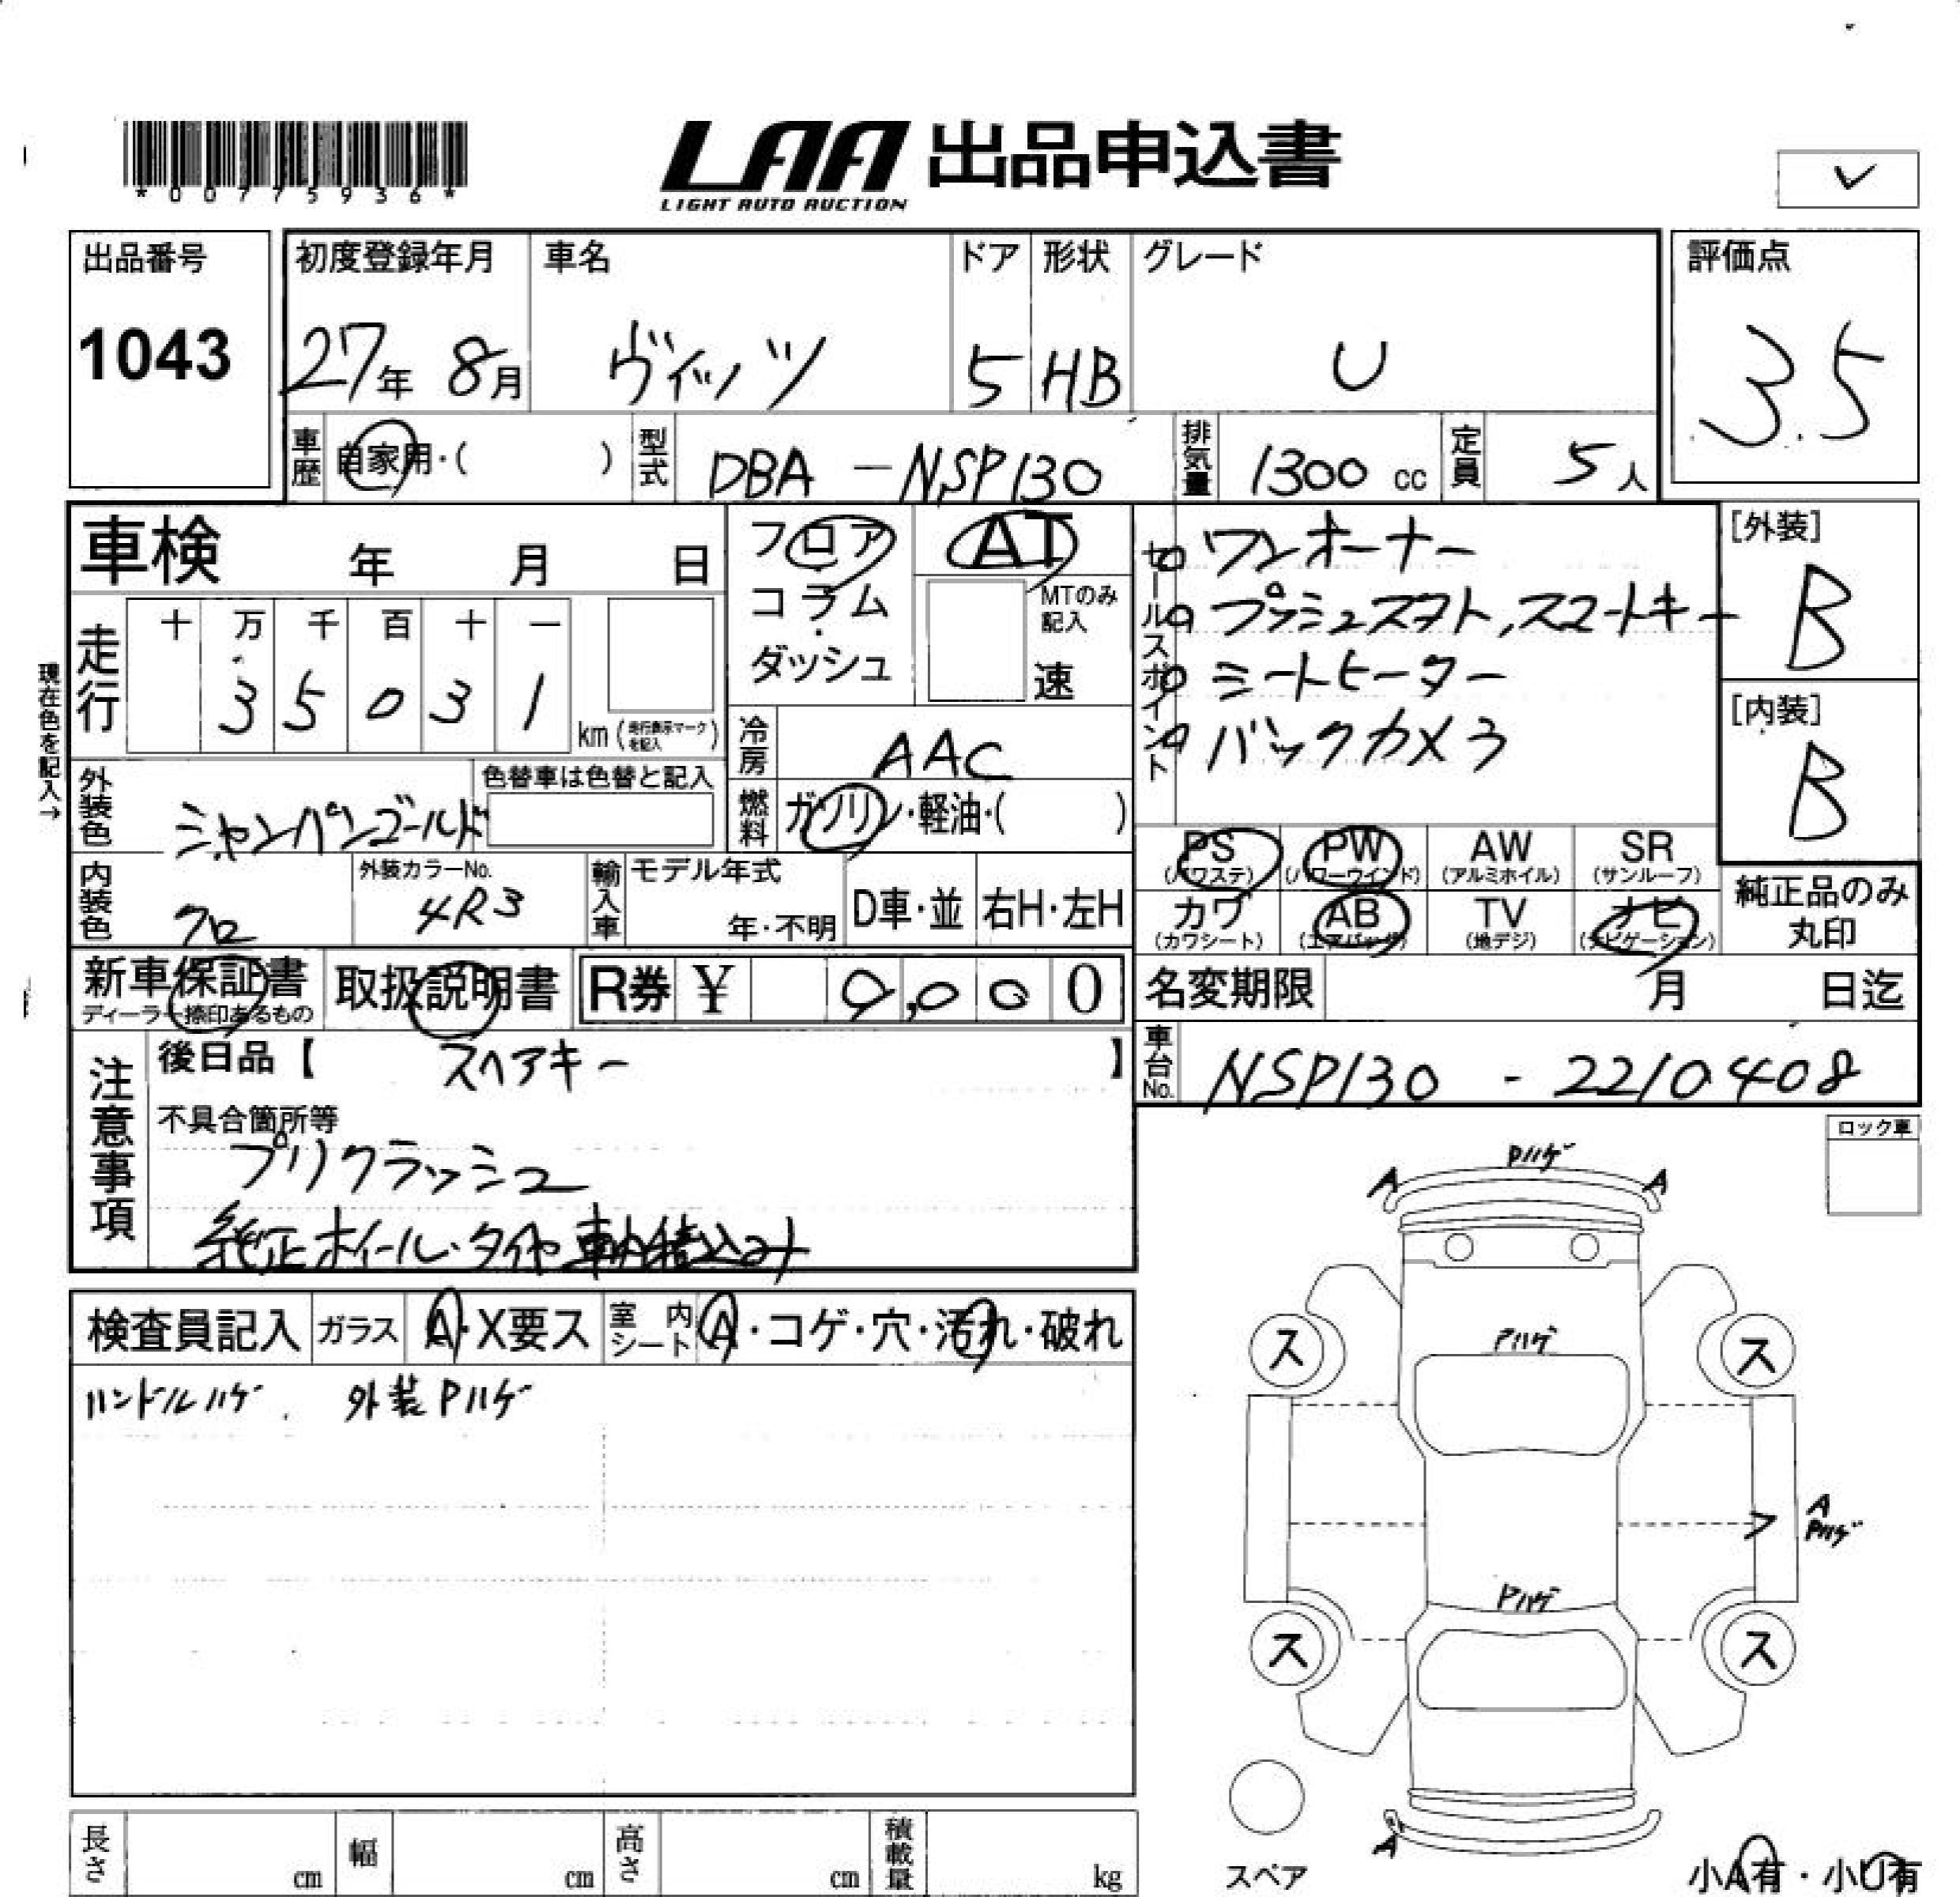 *00775936*
LAA 出品申込書
LIGHT AUTO AUCTION
出品番号
1043
初度登録年月
27年 8月
車名
ヴィッツ
ドア
5
形状
HB
グレード
U
評価点
3.5
車歴 自家用・( )
型式 DBA-NSP130
排気量 1300 cc
定員 5人
車検 年 月 日
フロア
コラム
・
ダッシュ
AT
MTのみ
記入
速
セールスポイント
ワンオーナー
プッシュスタート,スマートキー
シートヒーター
バックカメラ
[外装]
B
[内装]
B
現在色を記入→
走行
十 万 千 百 十 一
3 5 0 3 1
km (走行表示マークを記入)
冷房 AAC
外装色 シャンパンゴールド
色替車は色替と記入
燃料 ガソリン・軽油・( )
PS (パワステ)
PW (パワーウインド)
AW (アルミホイル)
SR (サンルーフ)
カワ (カワシート)
AB (エアバッグ)
TV (地デジ)
ナビ (ナビゲーション)
純正品のみ
丸印
内装色 クロ
外装カラーNo.
4R3
輸入車
モデル年式
年・不明
D車・並
右H・左H
新車保証書
ディーラー捺印あるもの
取扱説明書
R券 ¥ 0,000
名変期限 月 日迄
車台No. NSP130 - 2210408
注意事項
後日品【 スペアキー 】
不具合箇所等
プリクラッシュ
純正ホイール・タイヤ車内積込み
ロック車
検査員記入
ガラス A・X要ス
室内シート A・コゲ・穴・汚れ・破れ
ハンドルハゲ. 外装Pハゲ
Pハゲ
A A
Pハゲ
ス ス
A
Pハゲ
Pハゲ
ス ス
A
スペア
小A有・小U有
長さ cm
幅 cm
高さ cm
積載量 kg